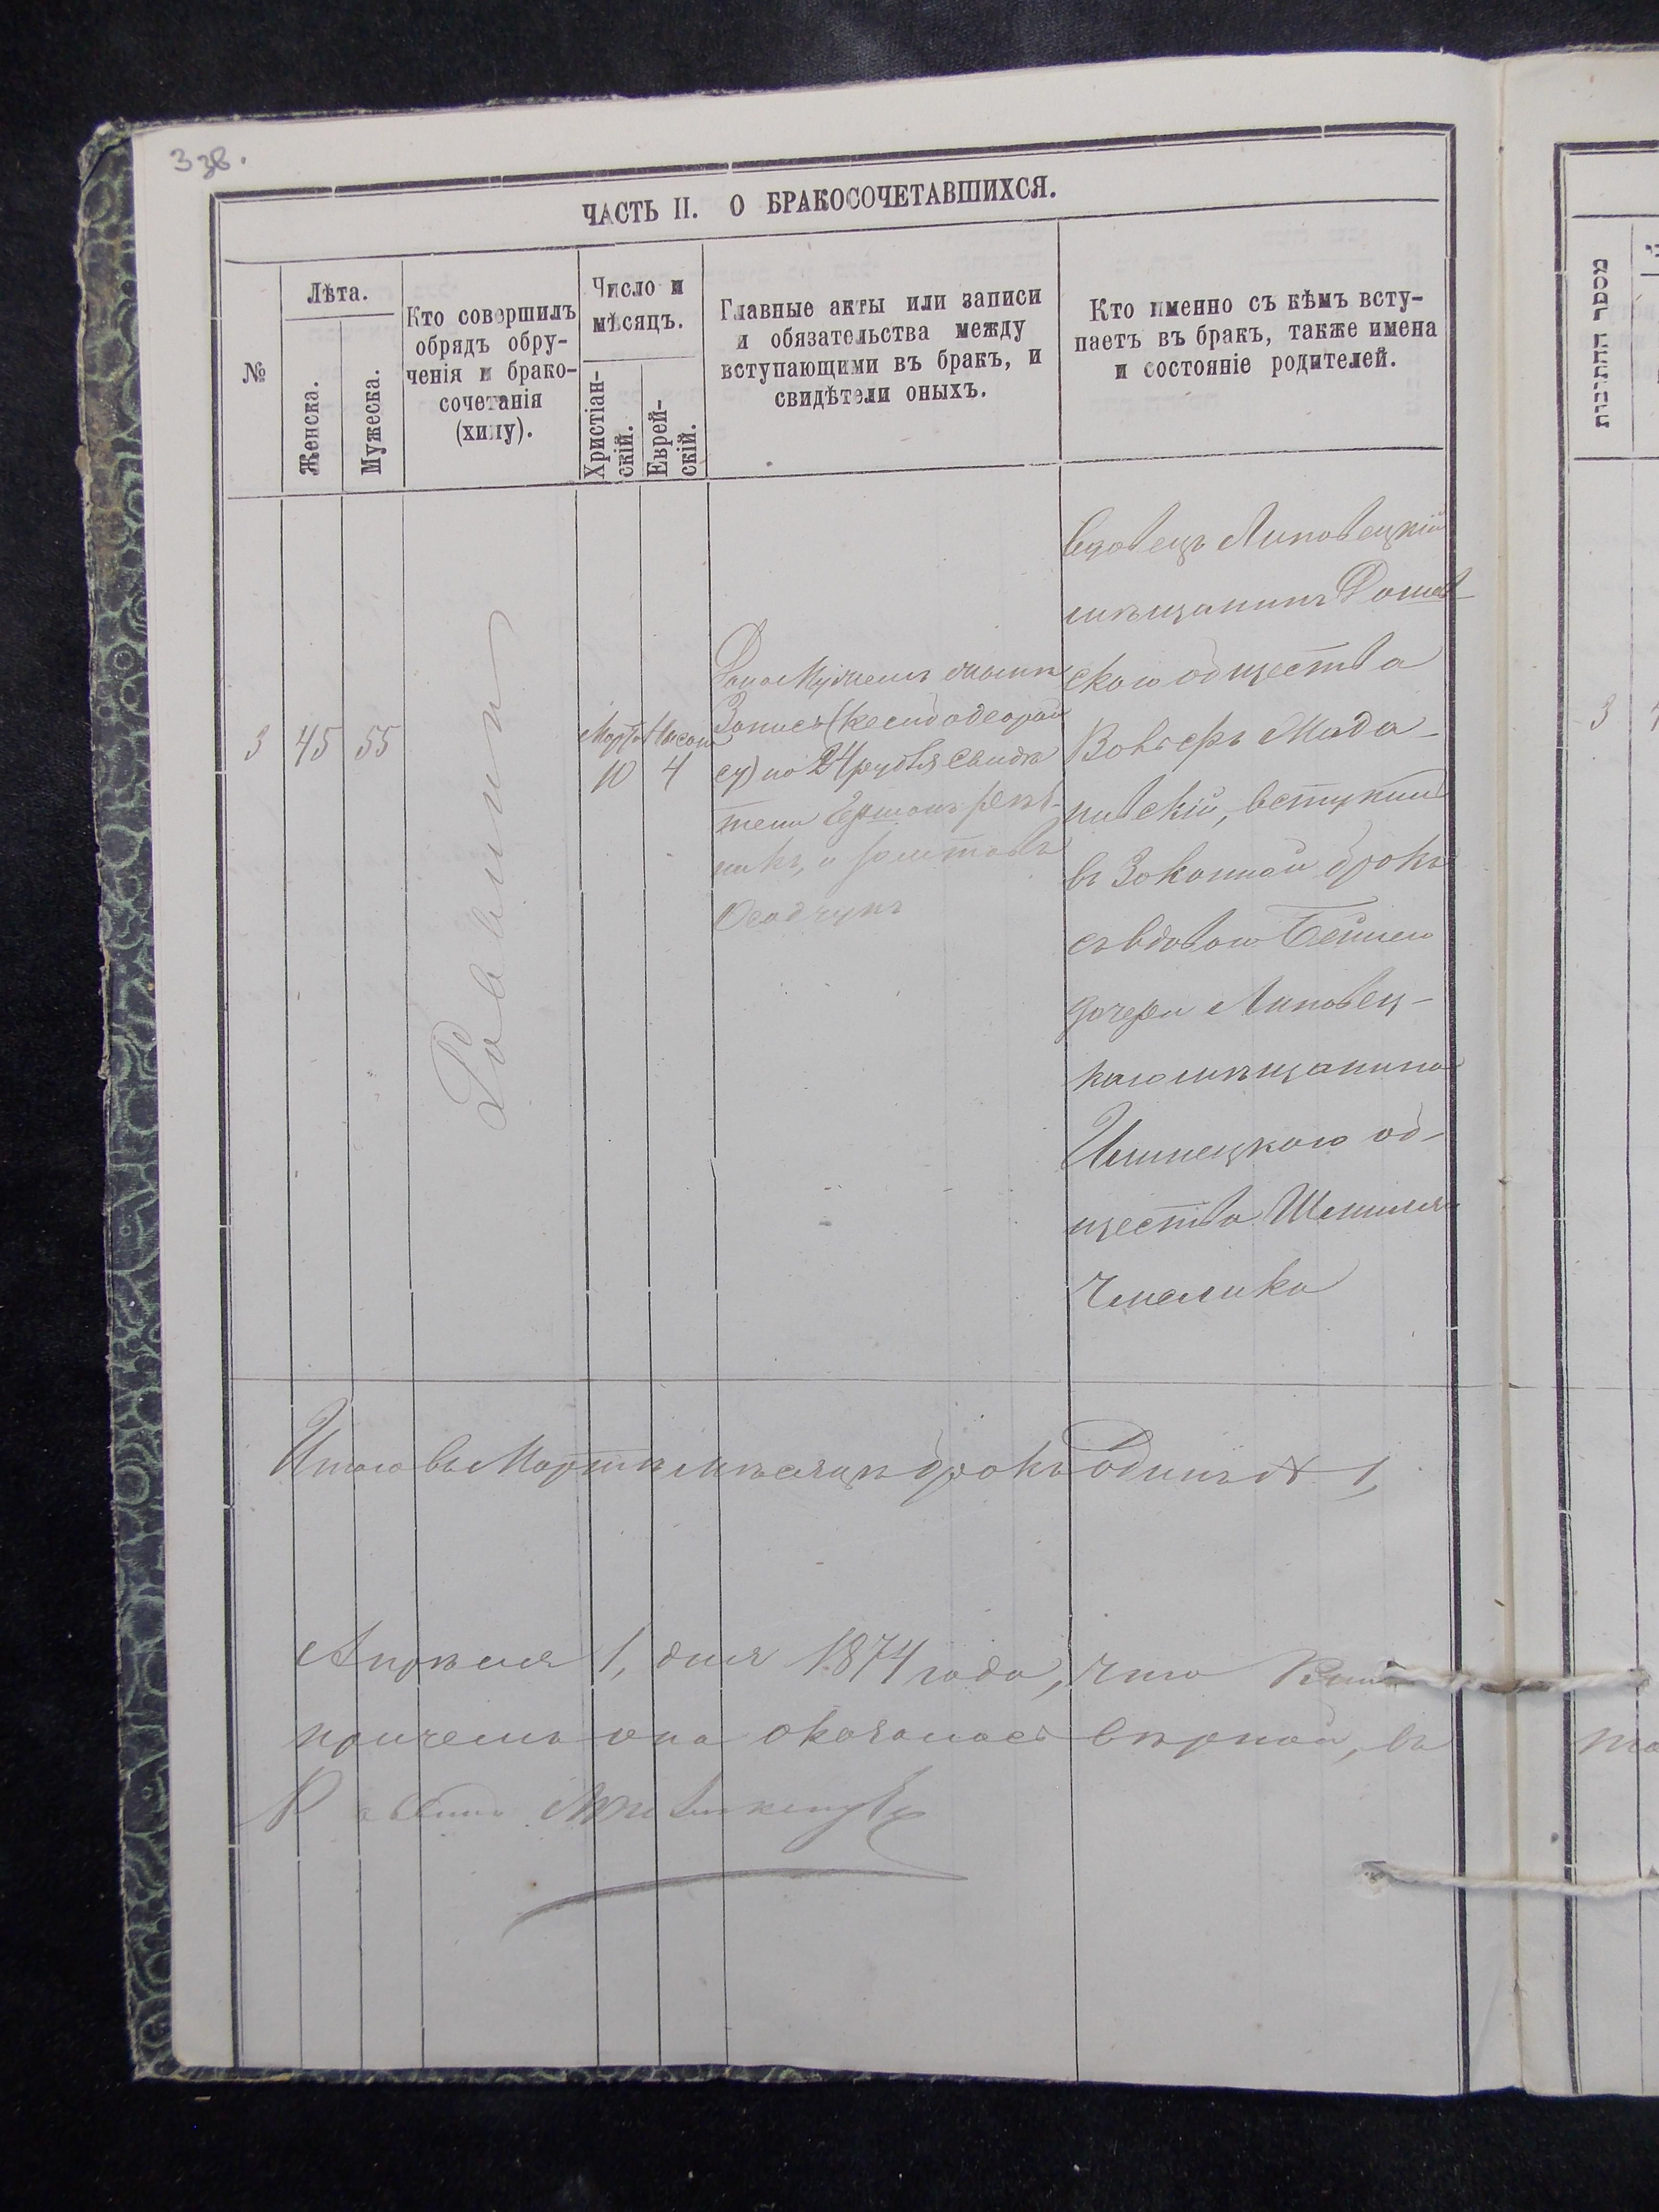 338.
ЧАСТЬ II. О БРАКОСОЧЕТАВШИХСЯ.
№
Лѣта.
Женска.
Мужеска.
Кто совершилъ
обрядъ обру-
ченія и брако-
сочетанія
(хипу).
Число и
мѣсяцъ.
Христіан-
скій.
Еврей-
скій.
Главные акты или записи
и обязательства между
вступающими въ бракъ, и
свидѣтели оныхъ.
Кто именно съ кѣмъ всту-
паетъ въ бракъ, также имена
и состояніе родителей.
3
45
55
Раввинъ
Марта
10
Нисона
4
Дана Мужемъ
Запись (
су) на 24 рубля Свидѣ
тели Ершонъ
никъ, и
Осадчукъ
Вдовецъ Липовецкій
мѣщанинъ Дашев-
скаго общества
Мада-
нивскій, вступилъ
въ Законной бракъ
съ вдовою Бейлею
дочери Липовец-
каго мѣщанина
Илинецкаго об-
щества
Чмелика
Итого въ Мартѣ мѣсяцѣ бракъ Одинъ № 1,
Апрѣля 1, дня 1874 года, что
причемъ она оказалась вѣрной, въ
Раввинъ
מספר החתונות
3